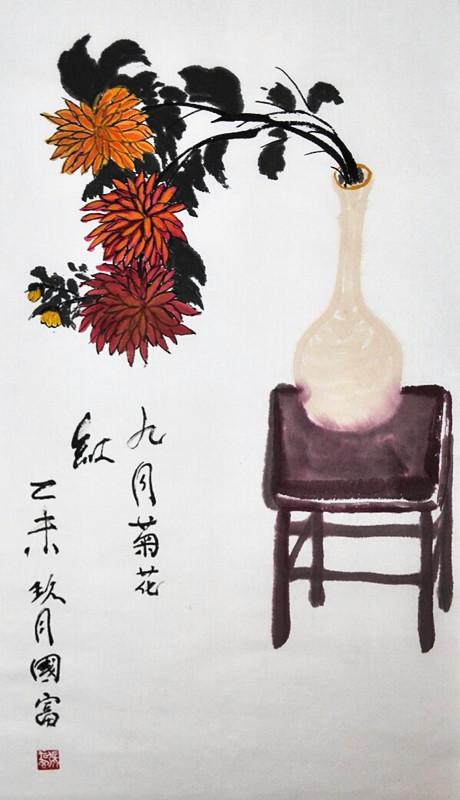 九月菊花
紅
乙未玖月國富